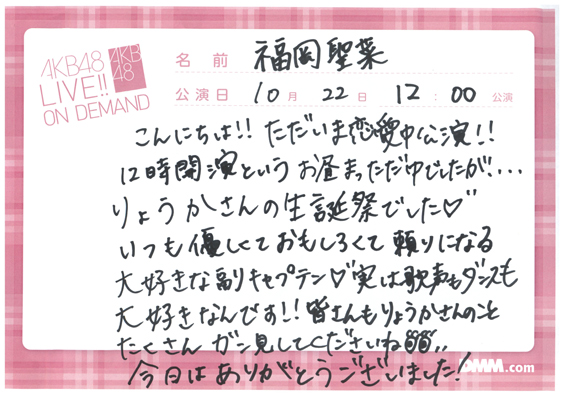 AKB48
LIVE!!
ON DEMAND
AKB
48
名前 福岡聖菜
公演日 10月 22日 12:00 公演
こんにちは!! ただいま恋愛中公演!!
12時開演という お昼まっただ中でしたが...
りょうかさんの生誕祭でした♡
いつも優しくておもしろくて 頼りになる
大好きな副キャプテン♡実は歌声もダンスも
大好きなんです!! 皆さんもりょうかさんのこと
たくさん ガン見してくださいね
今日はありがとうございました!
DMM.com